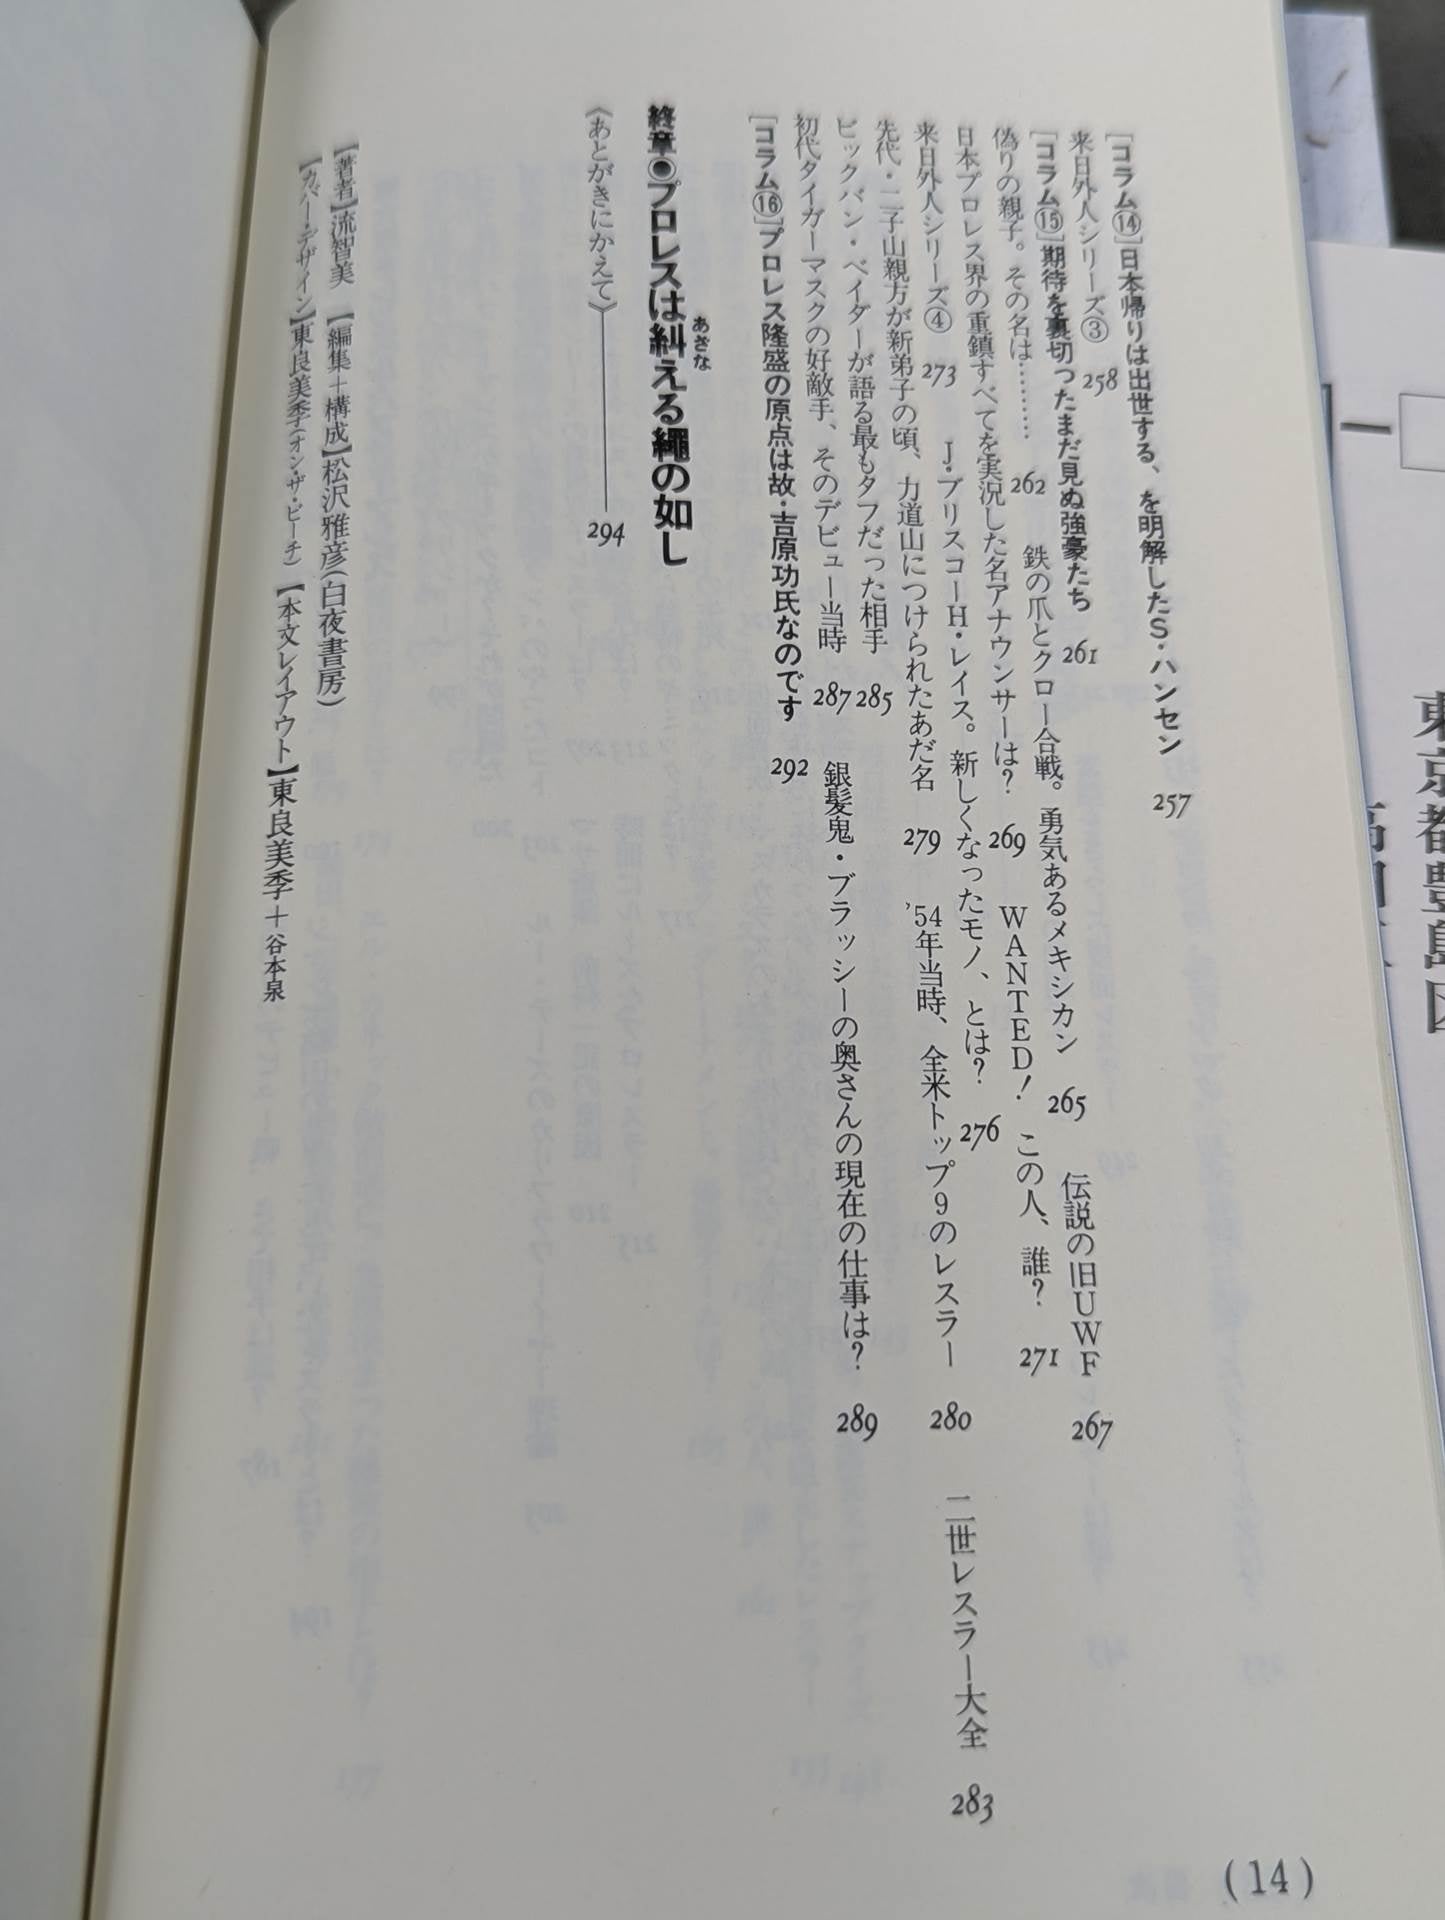 [コラム⑭]日本帰りは出世する、を明解したS・ハンセン 257
来日外人シリーズ③ 258
[コラム⑮]期待を裏切ったまだ見ぬ強豪たち 261
偽りの親子。その名は……… 262 鉄の爪とクロー合戦。勇気あるメキシカン 265 伝説の旧UWF 267
日本プロレス界の重鎮すべてを実況した名アナウンサーは? 269 WANTED! この人、誰? 271
来日外人シリーズ④ 273 J・ブリスコーH・レイス。新しくなったモノ、とは? 276
先代・二子山親方が新弟子の頃、力道山につけられたあだ名 279 '54年当時、全米トップ9のレスラー 280 二世レスラー大全 283
ビックバン・ベイダーが語る最もタフだった相手 285
初代タイガーマスクの好敵手、そのデビュー当時 287 銀髪鬼・ブラッシーの奥さんの現在の仕事は? 289
[コラム⑯]プロレス隆盛の原点は故・吉原功氏なのです 292
終章◉プロレスは糾える繩の如し
あざな
《あとがきにかえて》 294
【著者】流智美 【編集+構成】松沢雅彦(白夜書房)
【カバー・デザイン】東良美季(オン・ザ・ビーチ) 【本文レイアウト】東良美季+谷本泉
(14)
東京都豊島区